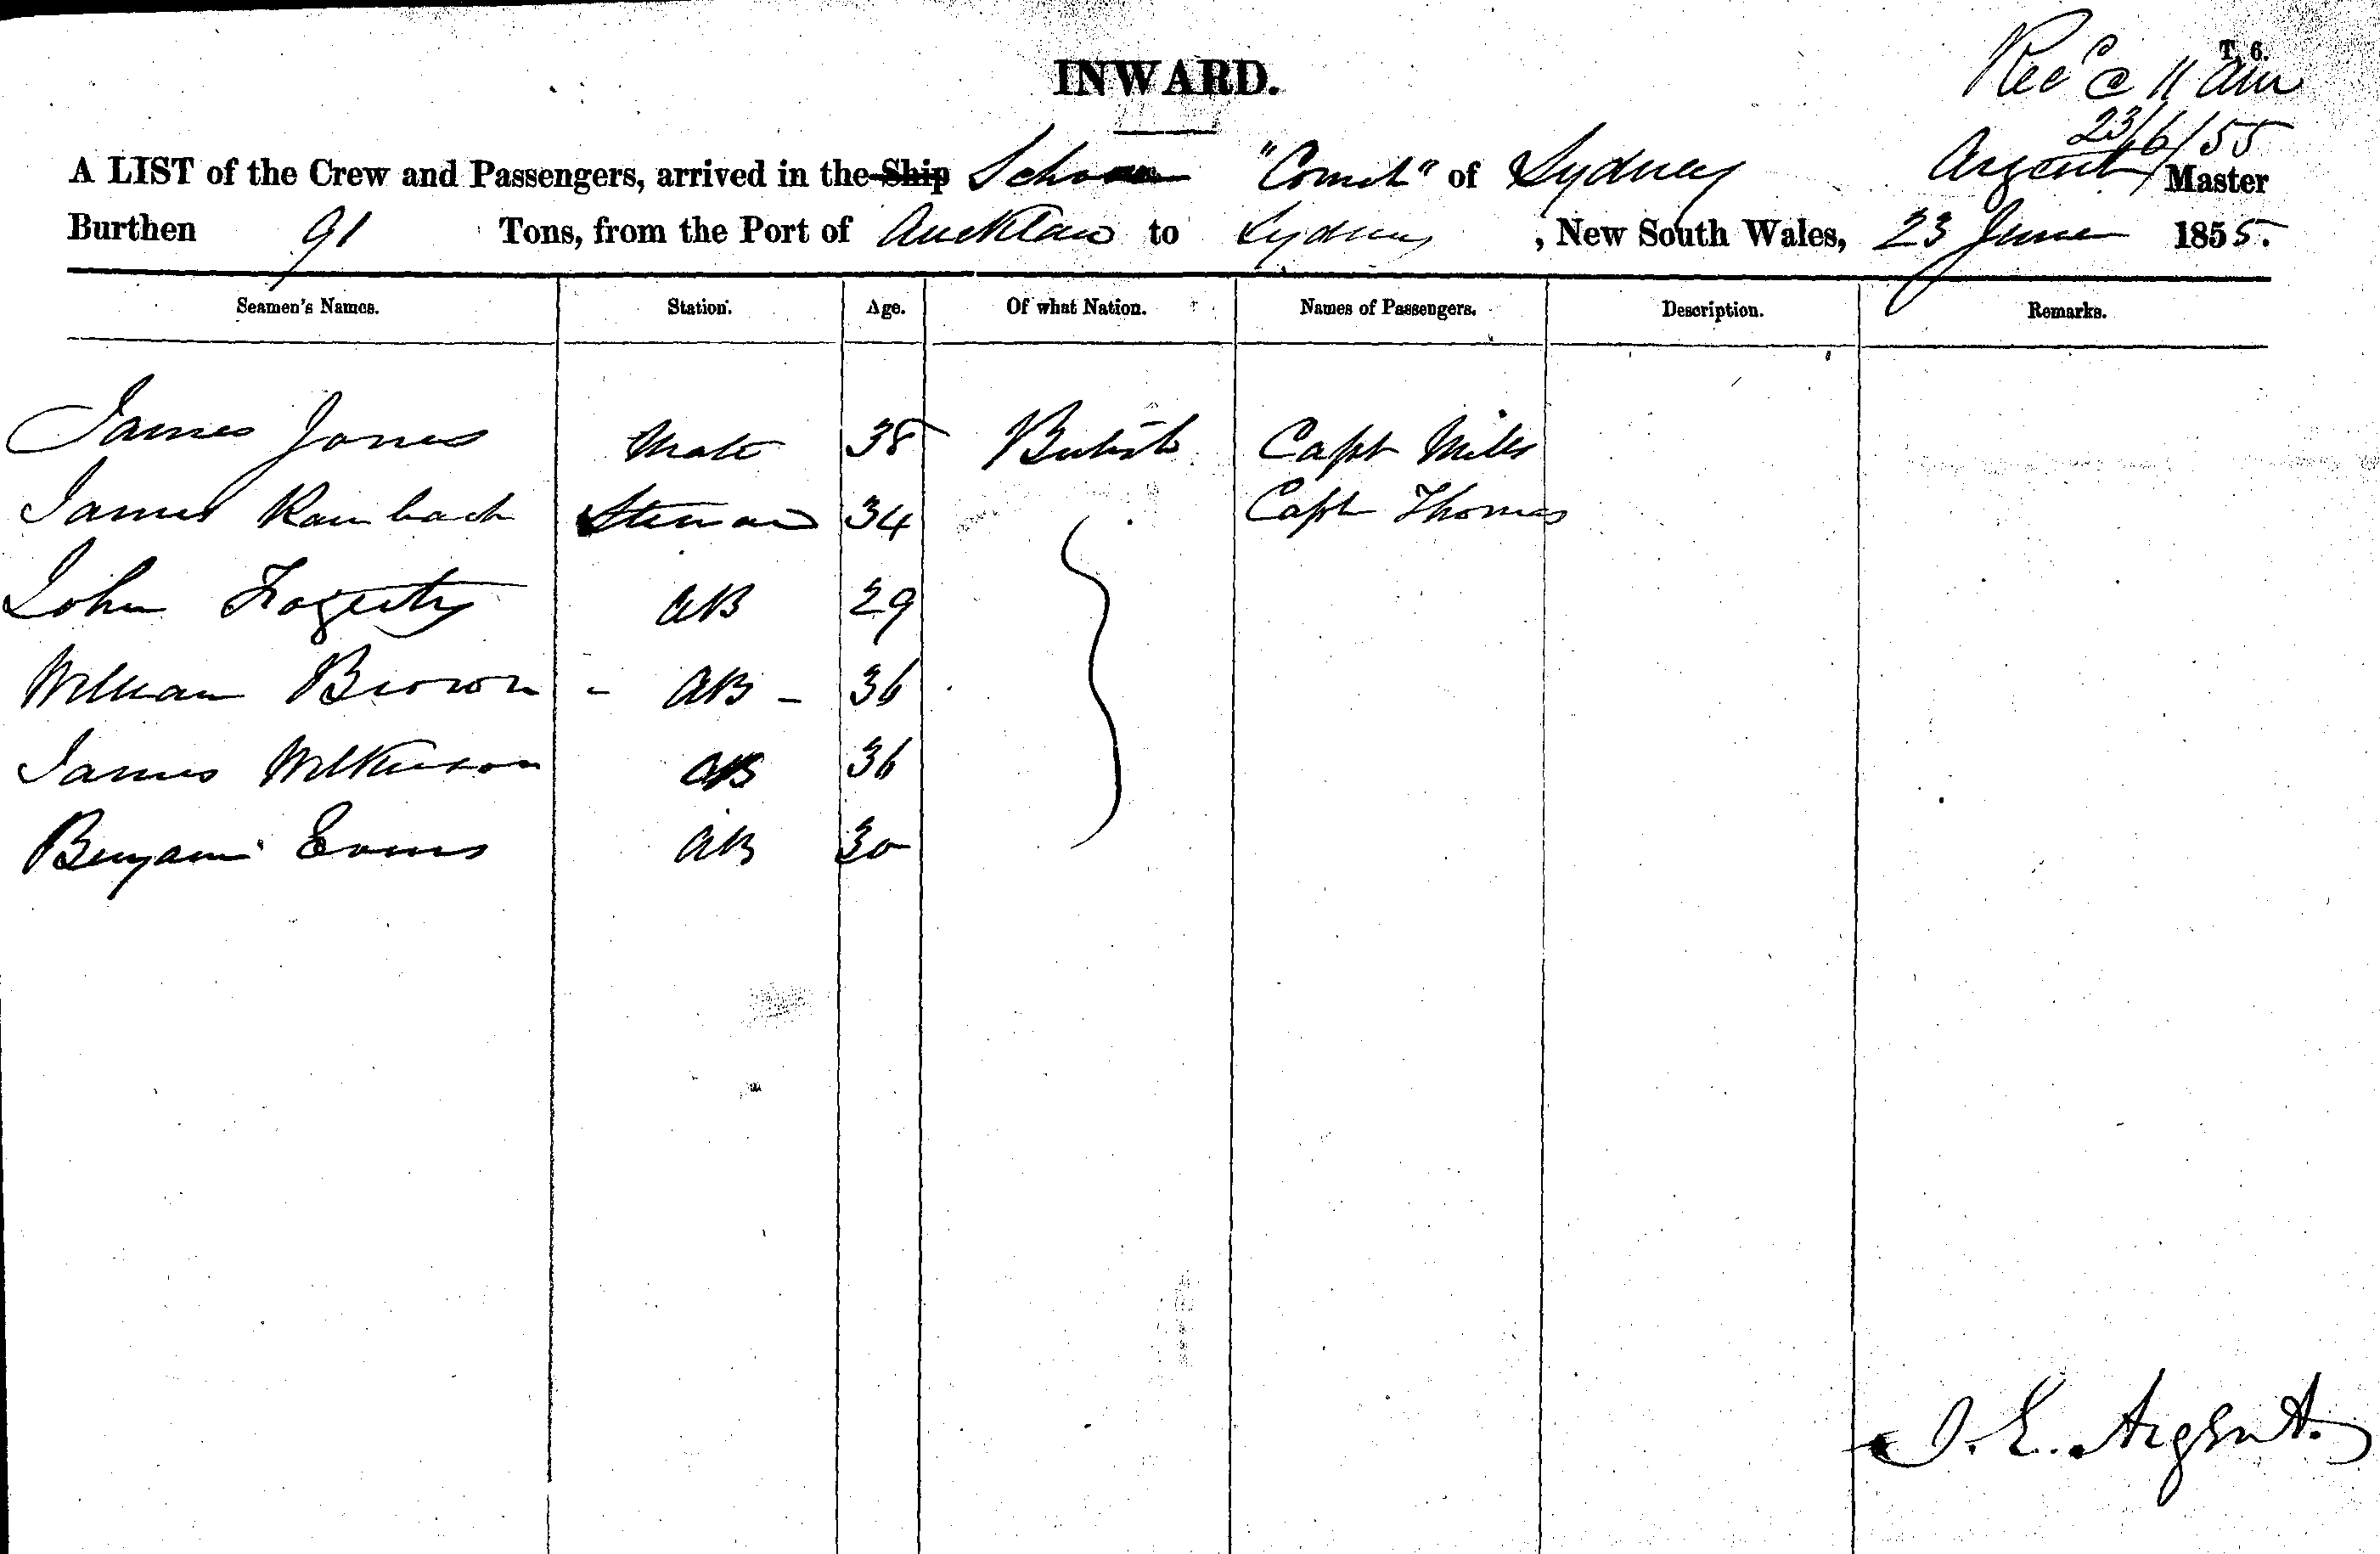 T. 6.
INWARD.
Recd @ 11 am
23/6/55
A LIST of the Crew and Passengers, arrived in the Ship Schooner "Comet" of Sydney Argent Master
Burthen 91 Tons, from the Port of Auckland to Sydney, New South Wales, 23 June 1855.
Seamen's Names. Station. Age. Of what Nation. Names of Passengers. Description. Remarks.
James Jones Mate 38 British Capt Mills
James Rambach Steward 34 Capt Thomas
John Fogerty AB 29
William Brown - AB - 36
James Wilkinson AB 36
Benjamin Evans AB 30
J. E. Argent.